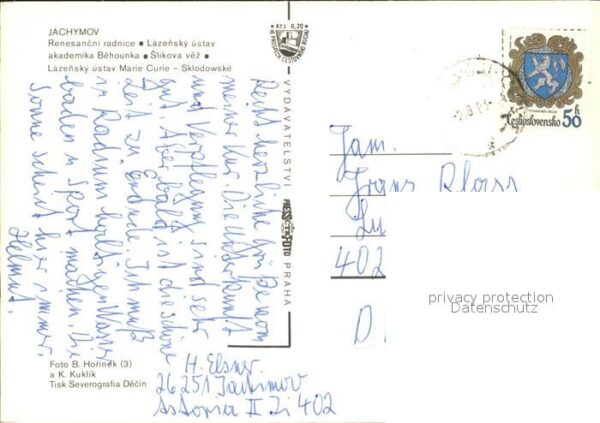 JÁCHYMOV
Renesanční radnice • Lázeňský ústav
akademika Běhounka • Šlikova věž •
Lázeňský ústav Marie Curie – Sklodowské
Recht herzliche Grüße vom
meiner Kur. Die Unterkunft
und Verpflegung sind sehr
gut. Aber bald ist die schöne
Zeit zu Ende. Ich muß
in Radium haltigen Wasser
baden u Sport machen. Die
Sonne scheint hier immer.
Helmut.
H. Elsner.
26251 Jachimov
Astoria II Zi 402
Foto B. Hořínek (3)
a K. Kuklík
Tisk Severografia Děčín
Kčs 0,20
VYDAVATELSTVÍ
PRESSFOTO
PRAHA
Československo 50 h
Fam.
Franz
402
D
privacy protection
Datenschutz